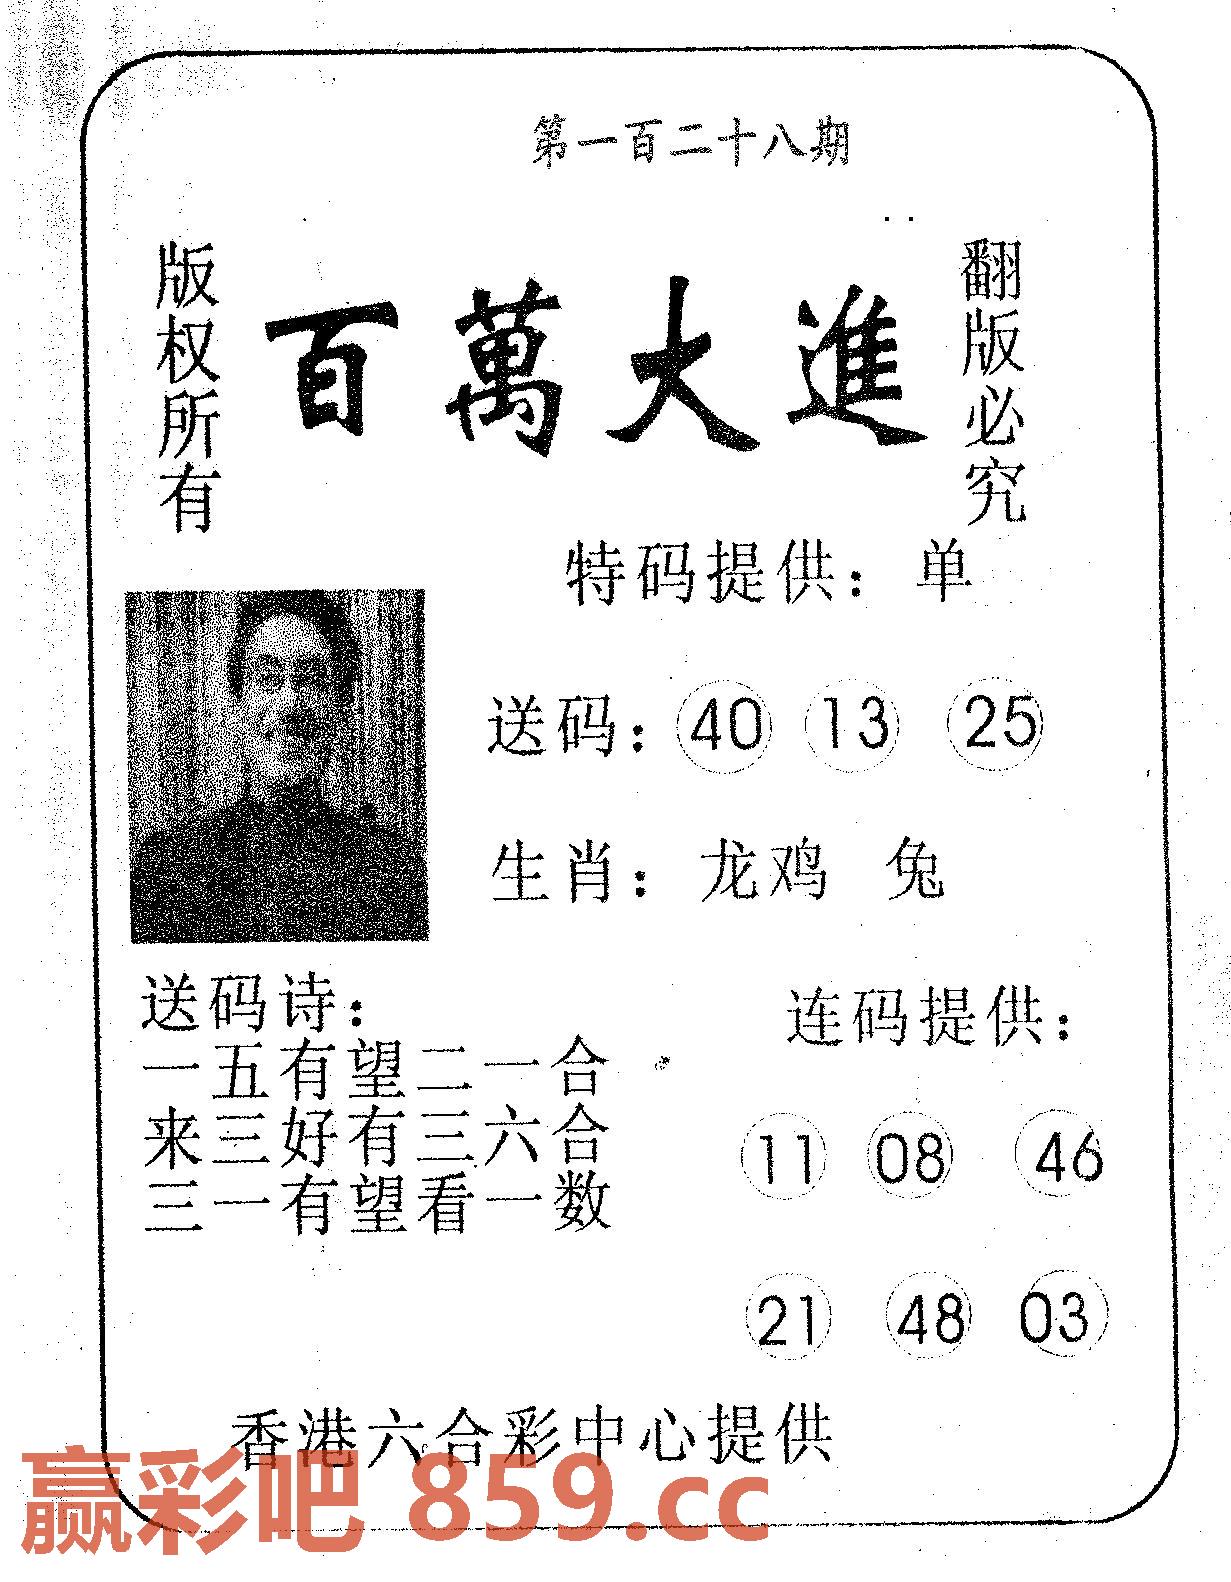 第一百二十八期
版权所有
百萬大進
翻版必究
特码提供：单
送码：40 13 25
生肖：龙鸡 兔
送码诗：
一五有望二一合
来三好有三六合
三一有望看一数
连码提供：
11 08 46
21 48 03
香港六合彩中心提供
赢彩吧 859.cc